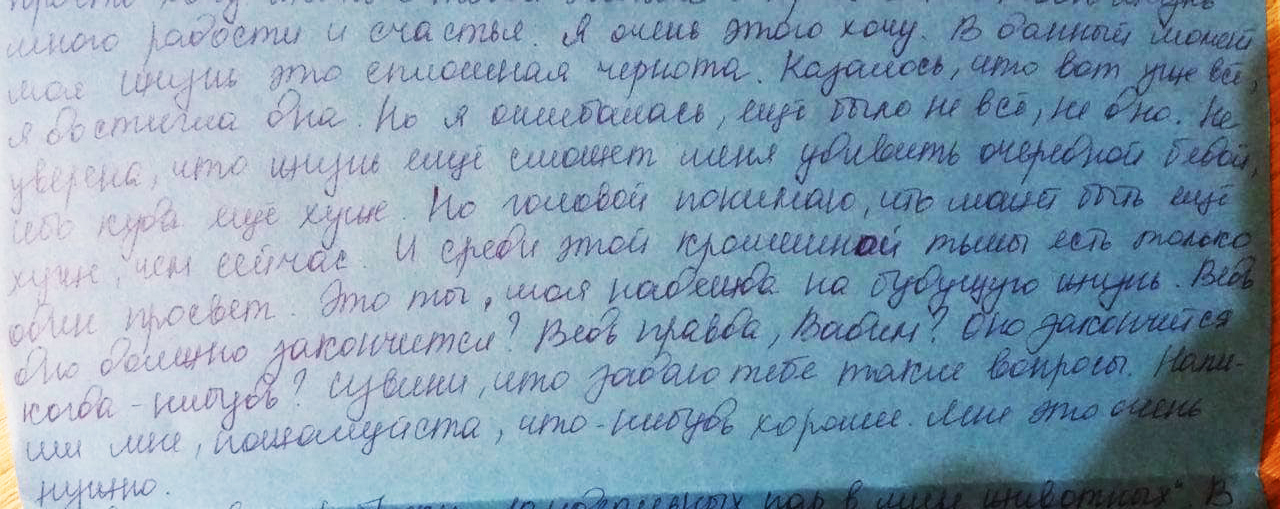 просто хочу
много радости и счастья. Я очень этого хочу. В данный момент
моя жизнь это сплошная чернота. Казалось, что вот уже всё,
я достигла дна. Но я ошибалась, ещё было не всё, не дно. Не
уверена, что жизнь ещё сможет меня удивить очередной бедой,
ибо куда ещё хуже. Но головой понимаю, что может быть ещё
хуже, чем сейчас. И среди этой кромешной тьмы есть только
один просвет. Это ты, моя надежда на будущую жизнь. Ведь
дно должно закончится? Ведь правда, Вадим? Оно закончится
когда-нибудь? Извини, что задаю тебе такие вопросы. Напи-
ши мне, пожалуйста, что-нибудь хорошее. Мне это очень
нужно.
пар в мире животных". В